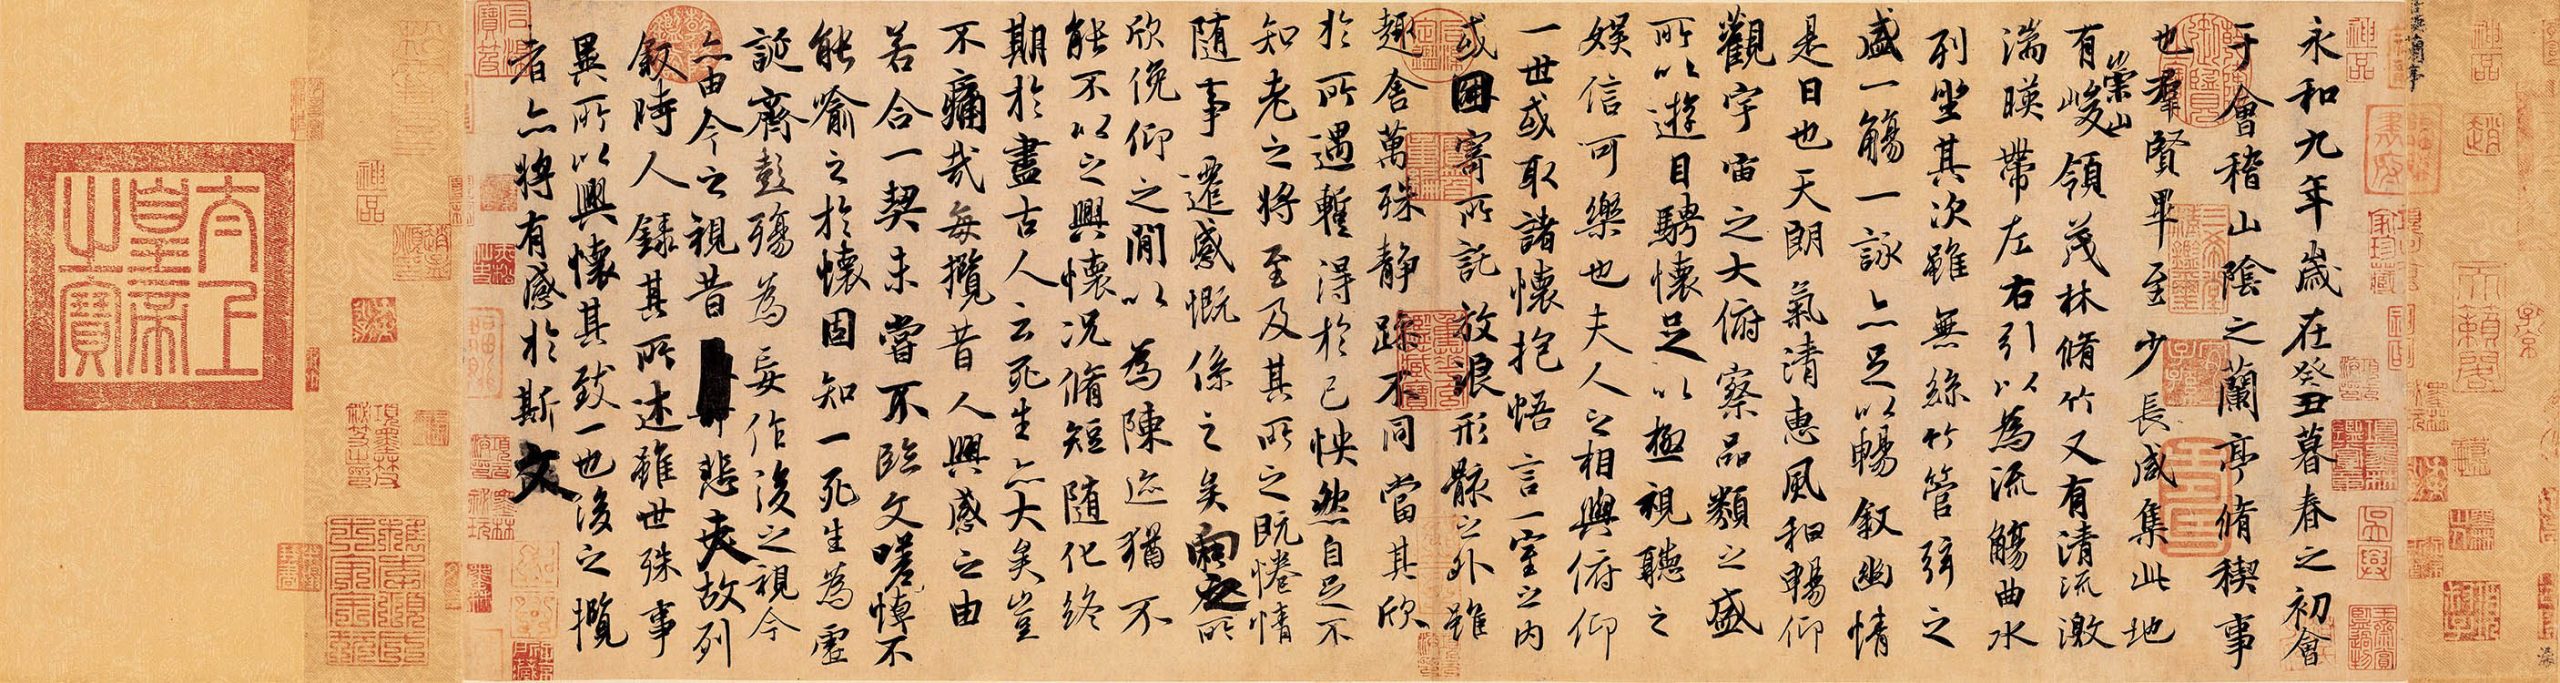 永和九年歲在癸丑暮春之初會
于會稽山陰之蘭亭脩稧事
也羣賢畢至少長咸集此地
有崇山峻領茂林脩竹又有清流激
湍暎帶左右引以為流觴曲水
列坐其次雖無絲竹管弦之
盛一觴一詠亦足以暢敘幽情
是日也天朗氣清惠風和暢仰
觀宇宙之大俯察品類之盛
所以遊目騁懷足以極視聽之
娛信可樂也夫人之相與俯仰
一世或取諸懷抱悟言一室之內
或因寄所託放浪形骸之外雖
趣舍萬殊靜躁不同當其欣
於所遇蹔得於己怏然自足不
知老之將至及其所之既惓情
隨事遷感慨係之矣向之所
欣俛仰之閒以為陳迹猶不
能不以之興懷況脩短隨化終
期於盡古人云死生亦大矣豈
不痛哉每攬昔人興感之由
若合一契未嘗不臨文嗟悼不
能喻之於懷固知一死生為虛
誕齊彭殤為妄作後之視今
亦由今之視昔悲夫故列
敘時人錄其所述雖世殊事
異所以興懷其致一也後之攬
者亦將有感於斯文
太上皇帝之寶
神品
天籟閣